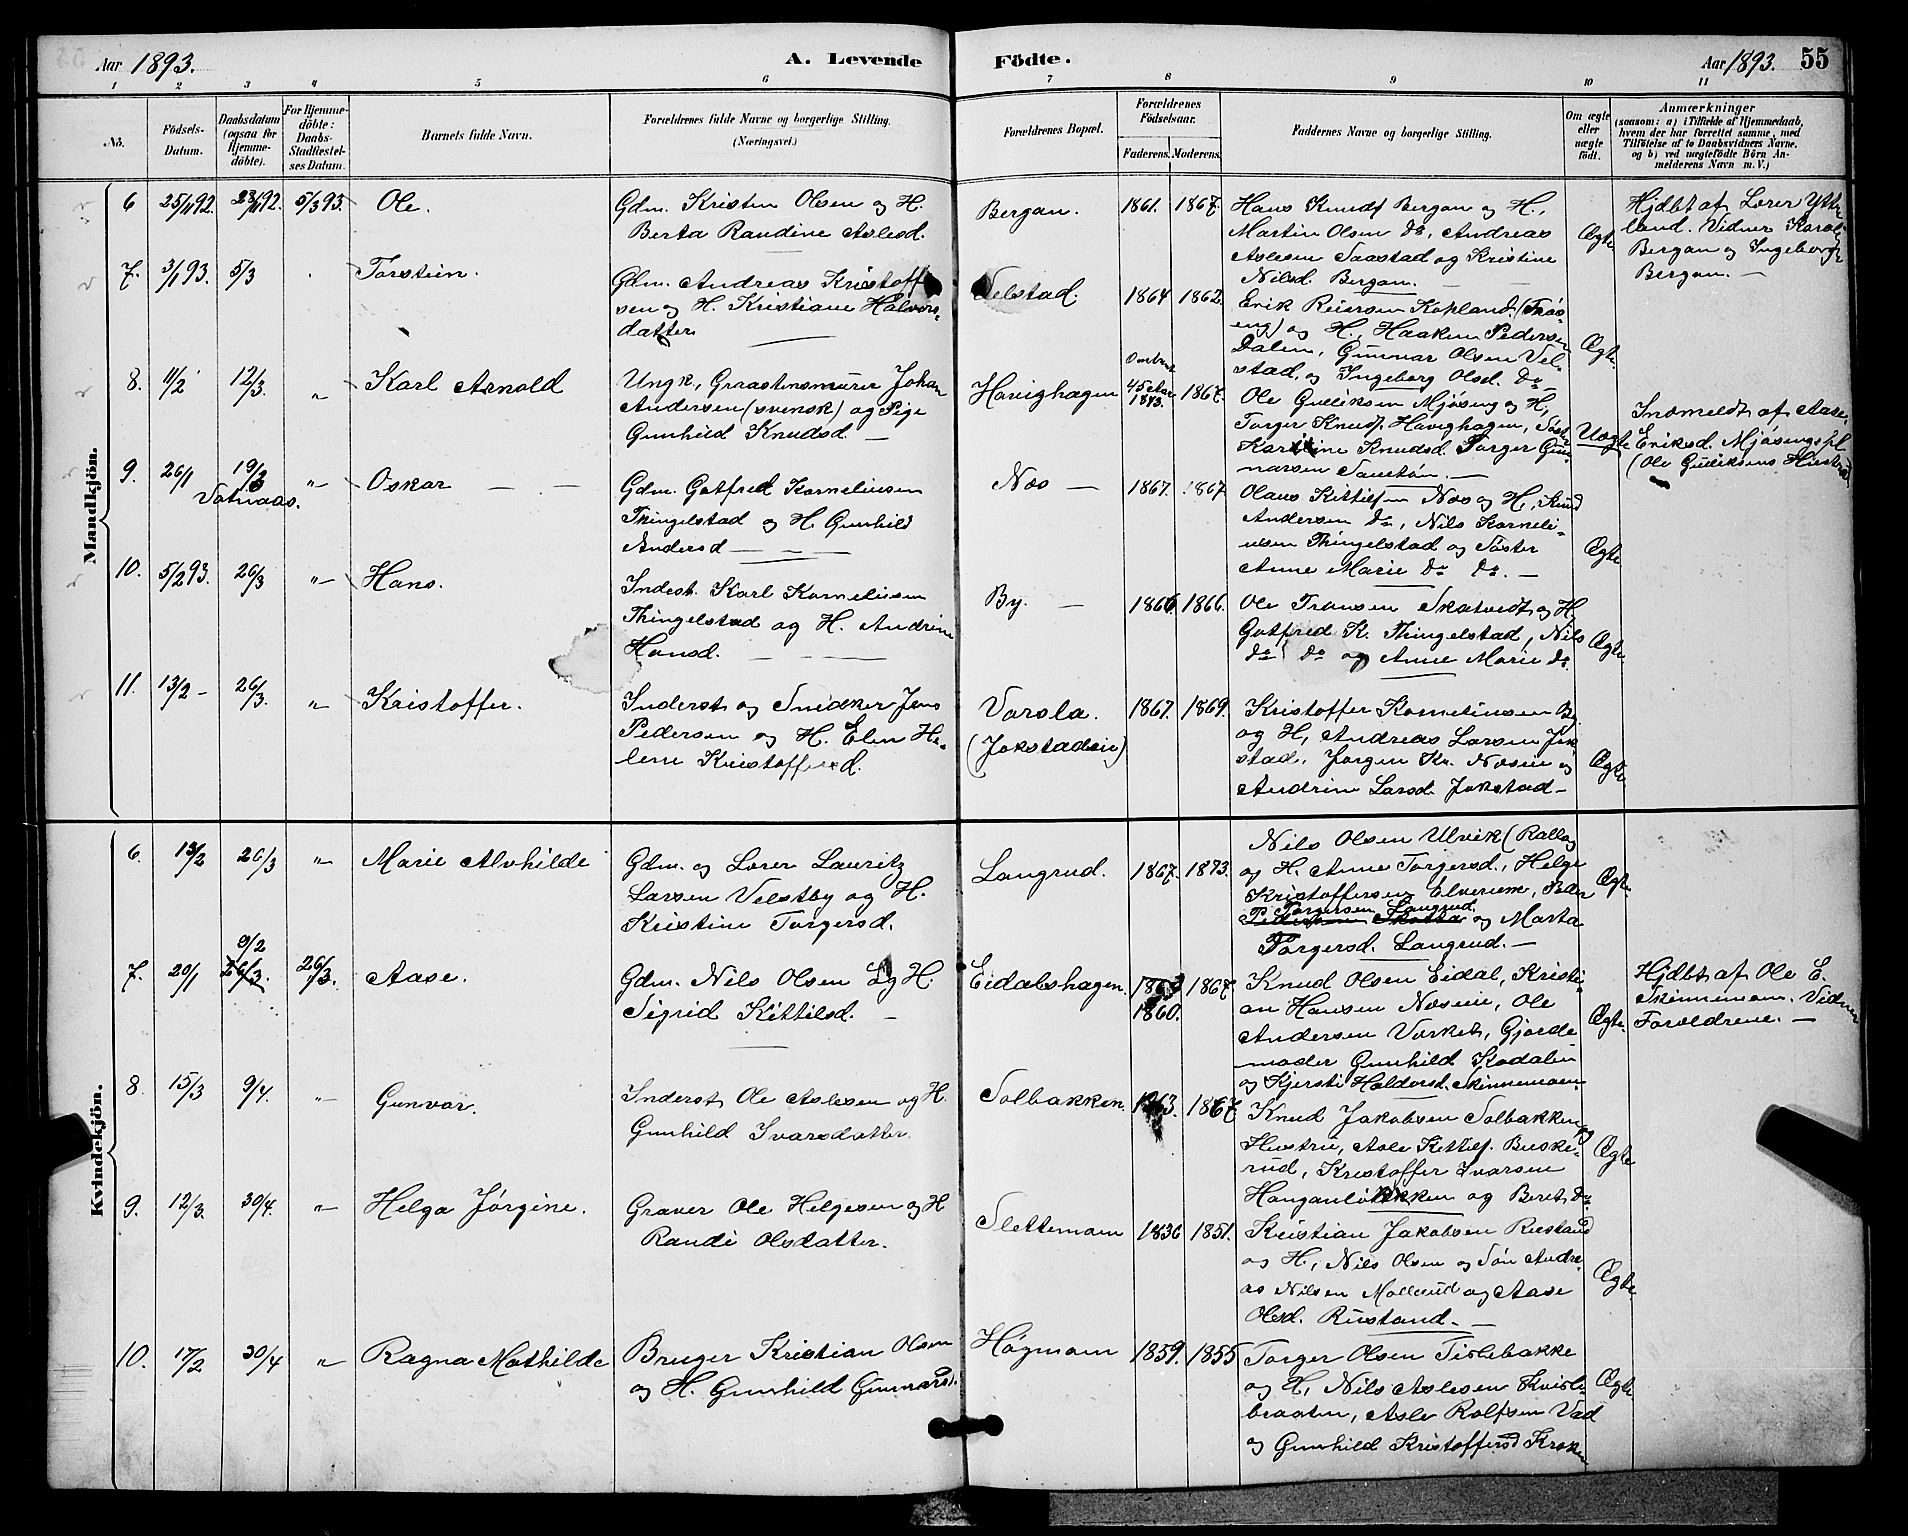 Aar 1893.
A. Levende
Födte.
Aar 1893. 55
1 2 3 4 5 6 7 8 9 10 11
No.
Födsels-
Datum.
Daabsdatum
(ogsaa for
Hjemme-
döbte).
For Hjemme-
döbte:
Daabs-
Stadfæstel-
ses Datum.
Barnets fulde Navn.
Forældrenes fulde Navne og borgerlige Stilling.
(Næringsvei.)
Forældrenes Bopæl.
Forældrenes
Födselsaar.
Faderens. Moderens.
Faddernes Navne og borgerlige Stilling.
Om ægte
eller
uægte
født.
Anmærkninger
(saasom: a) i Tilfælde af Hjemmedaab,
hvem der har forrettet samme, med
Tilföielse af to Daabsvidners Navne,
og b) ved uægtefödte Börn An-
melderens Navn m. V.)
Mandkjön.
6 25/11 92. 5/3 93. Ole.
Gdm. Kristen Olsen og H.
Berta Randine Aslesd.
Bergan. 1861. 1867.
Hans Knuds. Bergan og H.,
Martin Olsen do, Andreas
Aslesen Saastad og Kristine
Nilsd. Bergan. —
Ægte
Hjdbt af Lærer Ytte-
land. Vidner Karoli
Bergan og Ingeborg
Bergan. —
7. 3/1 93. 5/3 Torstein.
Gdm. Andreas Kristoff
sen og H. Kristiane Halvors-
datter
Velstad. 1864 1862.
Erik Reiersen Kopland (Traa-
eng) og H., Haaken Pedersen
Dalen, Gunnar Olsen Vel-
stad, og Ingeborg Olsd. do
Ægte.
8. 11/2 12/3. „ Karl Arnold
Ungk., Graastensmurer Johan
Andersen (svensk) og Pige
Gunhild Knudsd. —
Havighagen 45 Aar 1867.
Ole Gulliksen Mjøseng og H,
Torger Knuds. Havighagen, Søster
Karoline Knudsd. Torger Gun-
narsen
Uægte
Indmeldt af Aase
Eriksd. Mjøsengspl
(Ole Gulliksens Hustru)
9. 26/1 19/3 „ Oskar — —
Vatnaas.
Gdm. Gotfred Kornelinsen
Thingelstad og H Gunhild
Andersd — — —
Næs — 1867. 1867
Olaus Kittilsen Næs og H, Knud
Andersen do, Nils Korneli-
ussen Thingelstad og Søster
Anne Marie do do. —
Ægte
10. 5/2 93. 26/3 „ Hans.
Inderst. Karl Kornelinsen
Thingelstad og H. Andrine
Hansd. — — —
By. — 1866 1866.
Ole Fransen Skatvedt og H.
Gotfred K. Thingelstad, Nils
do do og Anne Marie do
Ægte
11. 13/2 - 26/3. „ Kristoffer.
Inderst og Snedker Jens
Pedersen og H. Elen He-
lene Kristoffersd.
Varsla. 1867. 1869.
(Jokstadeie)
Kristoffer Kornelinsen By
og H, Andreas Larsen Jok-
stad, Jørgen Kr. Næseie og
Andrine Larsd. Jokstad —
Ægte
Kvindekjön.
6. 13/2 26/3 „ Marie Alvhilde
Gdm. og Lærer Lauritz
Larsen Velstby og H.
Kristine Torgersd.
Langrud. 1867. 1873.
Nils Olsen Ulvik (Rallag
og H. Anne Torgersd., Helge
Kristoffersen Elverum, Peder
Torgersen Langrud.
og Marta
Torgersd. Langrud. —
Ægte
7. 20/1 9/2 26/3. 26/3. Aase.
Gdm. Nils Olsen og H.
Sigrid Kittilsd. —
Eidalshagen. 1860. 1867.
Knud Olsen Eidal, Kristi-
an Hansen Næseie, Ole
Andersen Varket, Gjorde-
moder Gunhild Kodalen
og Kjersti Haldorsd. Skinnemoen
Ægte.
Hjdbt af Ole E.
Skinnemoen. Vidner
Forældrene. —
8. 15/3 9/4. „ Gunvor.
Inderst Ole Aslesen og H.
Gunhild Ivarsdatter.
Solbakken 1863. 1867
Knud Jakobsen Solbakken og
Hustru, Asle Kittils. Buske-
rud, Kristoffer Ivarsen
Hauganløkken og Beret do
Ægte
9. 12/3. 30/4. „ Helga Jørgine.
Graver Ole Helgesen og H
Randi Olsdatter.
Slettemoen 1836 1851.
Kristian Jakobsen Rustand
og H, Nils Olsen og Søn Andre-
as Nilsen Mollerud og Aase
Olesd. Rustand. —
Ægte
10. 17/2 30/4 „ Ragna Mathilde
Bruger Kristian Olsen
og H. Gunhild Gunnarsd.
Høgmoen 1859. 1855
Torger Olsen Tislebakke
og H, Nils Aslesen Kvisle-
braaten, Asle Rolfsen Vad
og Gunhild Kristoffersd Kroken
Ægte